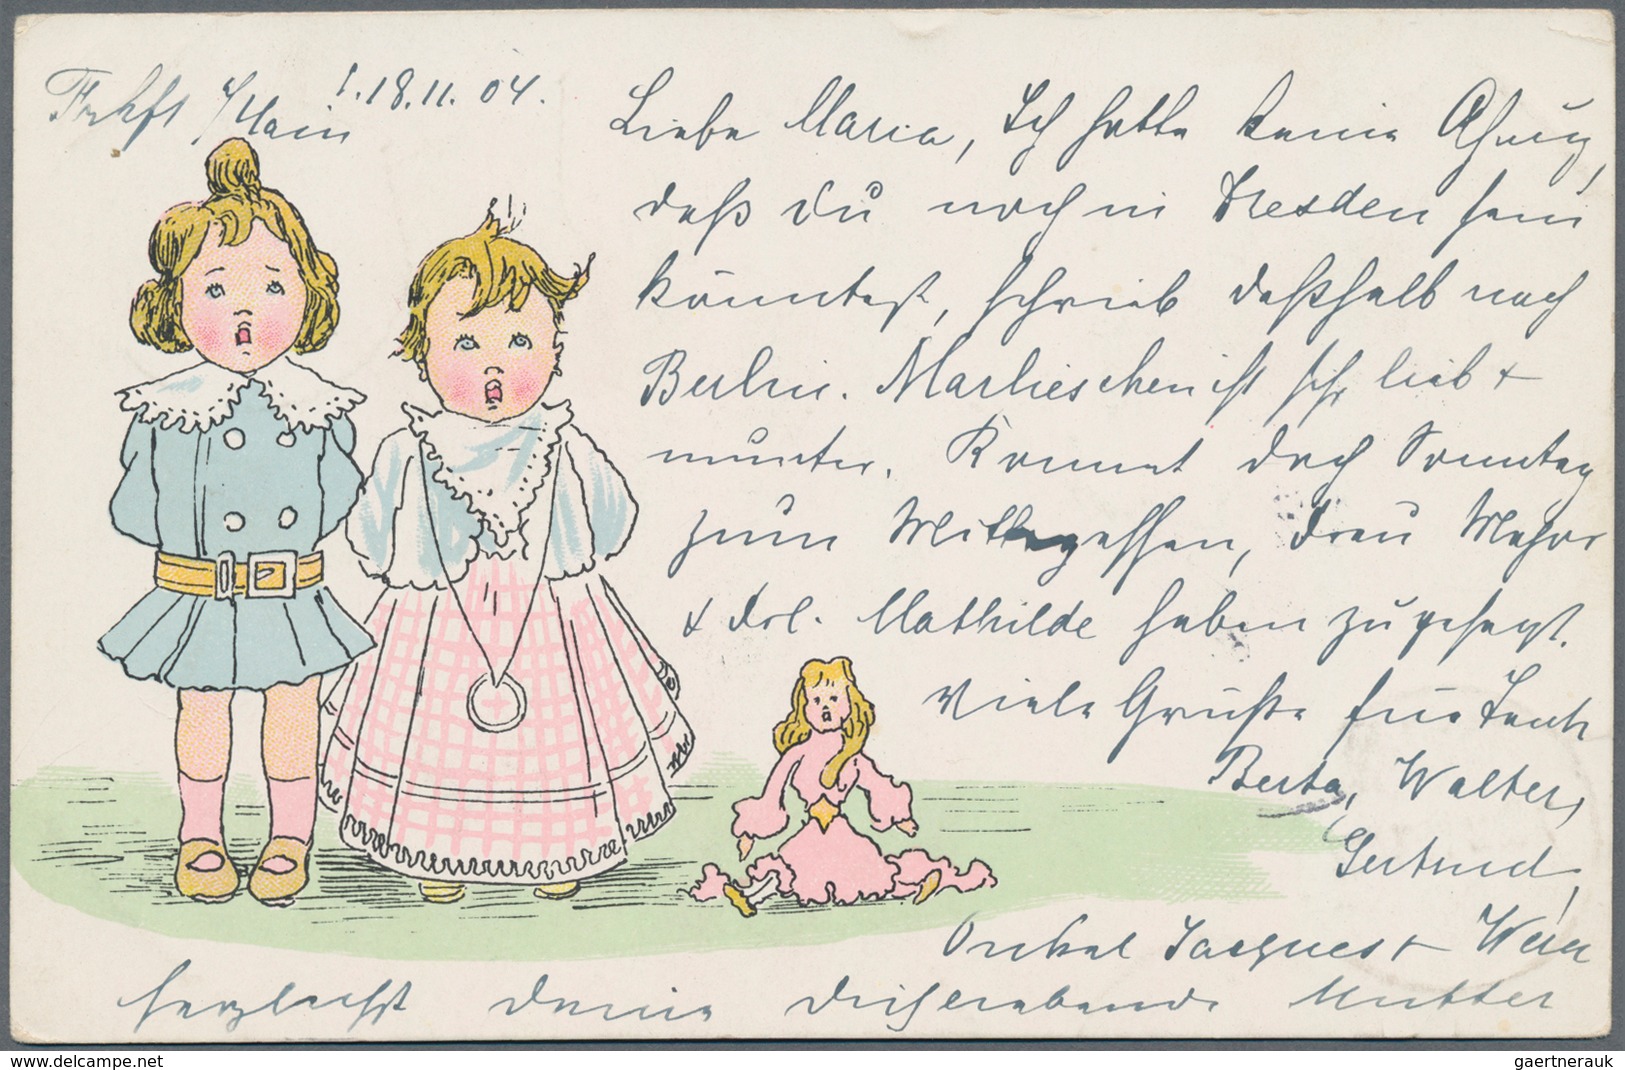 Frkft a/Main 18.11.04.
Liebe Maria, Ich hatte keine Ahnung,
daß du noch in Dresden sein
könntest, schrieb deßhalb nach
Berlin. Marlieschen ist sehr lieb +
munter. Kommt doch Sonntag
zum Mittagessen, Frau
+ Frl. Mathilde haben zugesagt.
Viele Grüße für Tante
Berta, Walter,
Gertrud,
Onkel Jacques +
herzlichst Deine Dich liebende Mutter
delcampe.net
gaertnerauk